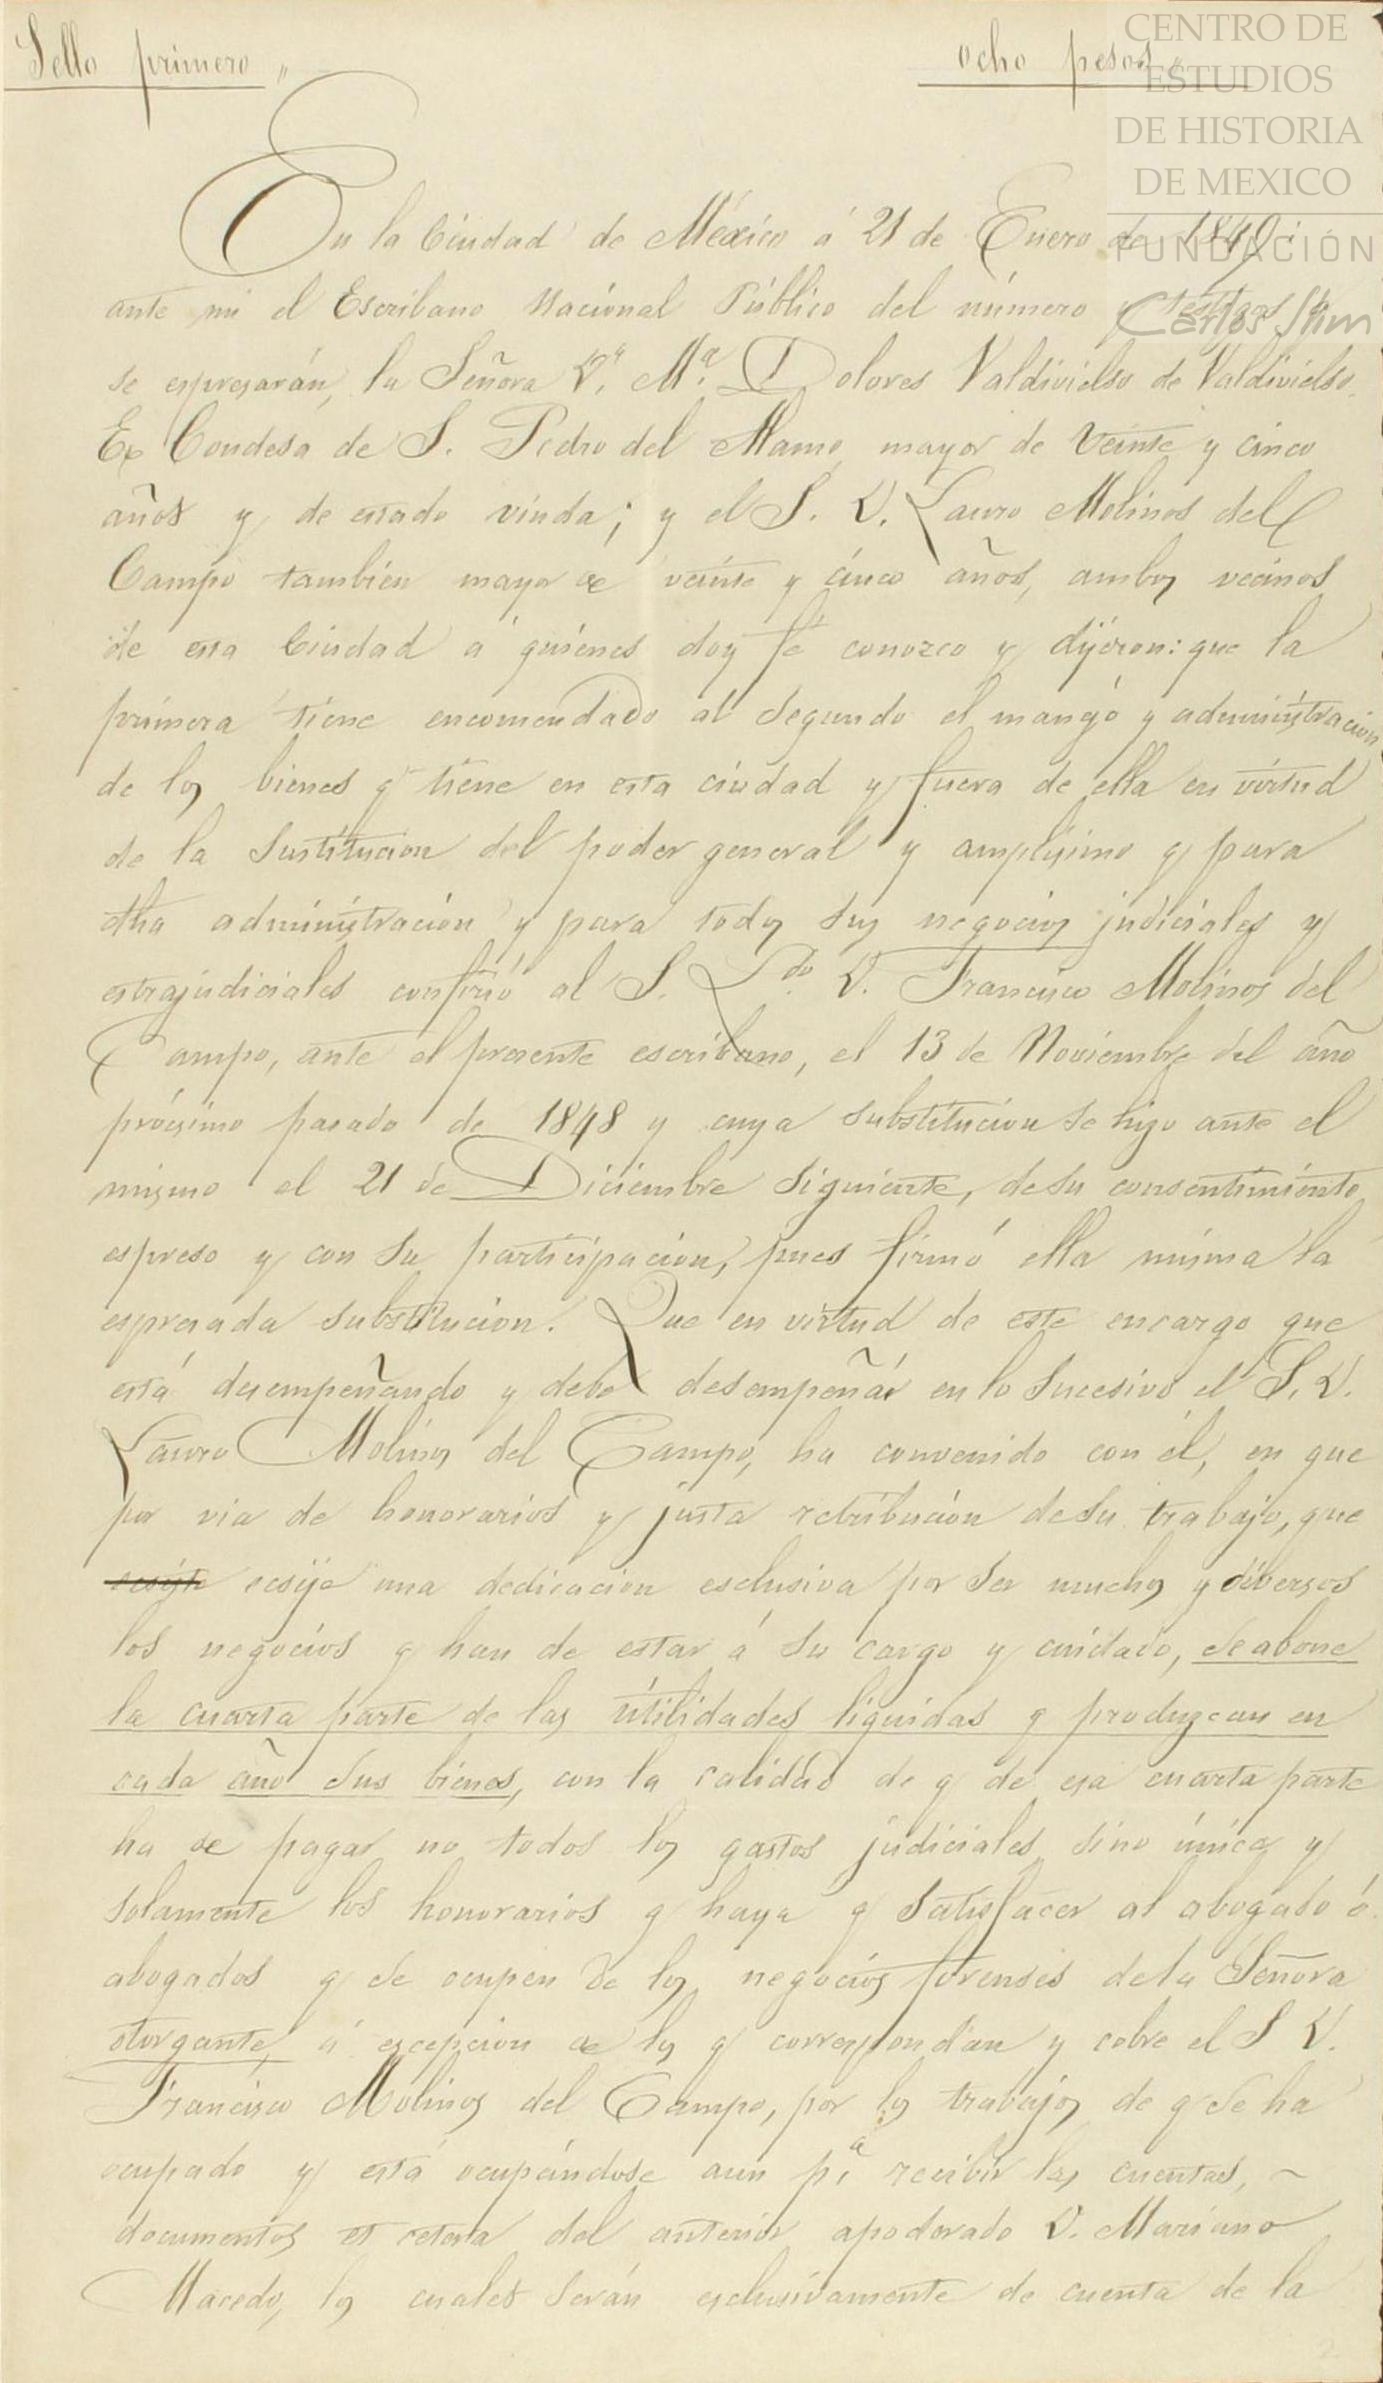 Sello primero „ ocho pesos „
CENTRO DE
ESTUDIOS
DE HISTORIA
DE MEXICO
FUNDACIÓN
Carlos Slim
En la Ciudad de México á 21 de Enero de 1849:
ante mi el Escribano Nacional Público del número y testigos q
se espresarán, la Señora D.ª M.ª Dolores Valdivielso de Valdivielso
Ex Condesa de S. Pedro del Álamo, mayor de veinte y cinco
años y de estado viuda; y el S. D. Lauro Molinos del
Campo también mayor de veinte y cinco años, ambos vecinos
de esta Ciudad á quiénes doy fé conozco y dijéron: que la
primera tiene encomendado al segundo el manejo y administracion
de los bienes q tiene en esta ciudad y fuera de ella en virtud
de la sustitucion del poder general y amplisimo q para
dha administracion y para todos sus negocios judiciales y
estrajudiciales confirió al S. Ldo. D. Francisco Molinos del
Campo, ante el presente escribano, el 13 de Noviembre del año
prócsimo pasado de 1848 y cuya substitucion se hizo ante el
mismo el 21 de Diciembre siguiente, de su consentimiento
espreso y con su participacion, pues firmó ella misma la
espresada substitucion. Que en virtud de este encargo que
está desempeñando y debe desempeñar en lo sucesivo el S. D.
Lauro Molinos del Campo, ha convenido con él, en que
por via de honorarios y justa retribucion de su trabajo, que
ecsije ecsije una dedicacion esclusiva por ser muchos y diversos
los negocios q han de estar á su cargo y cuidado, se abone
la cuarta parte de las útilidades liquidas q produzcan en
cada año sus bienes, con la calidad de q de esa cuarta parte
ha de pagar no todos los gastos judiciales sino única y
solamente los honorarios q haya q satisfacer al abogado ó
abogados q se ocupen de los negocios forenses de la Señora
otorgante, á escepcion de los q correspondan y cobre el S D.
Francisco Molinos del Campo, por los trabajos de q se ha
ocupado y está ocupándose aun p.ª recibir las cuentas, ~
documentos et cetera del anterior apoderado D. Mariano
Macedo, los cuales serán esclusivamente de cuenta de la
2